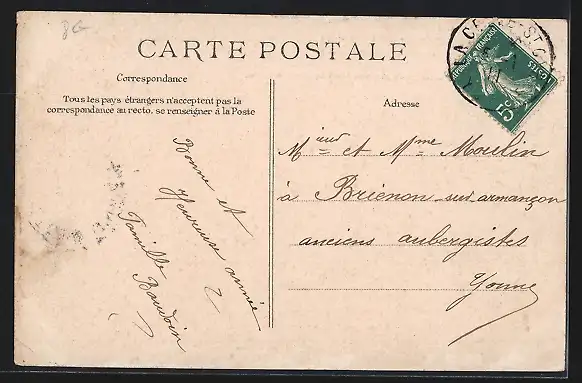 8G
CARTE POSTALE
Correspondance
Tous les pays étrangers n'acceptent pas la
correspondance au recto, se renseigner à la Poste
Bonne et
Heureuse année
Famille
Baudoin
Adresse
Mieur et Mme Moulin
à Brienon sur armançon
anciens aubergistes
Yonne
LA CELLE-ST-C
RÉPUBLIQUE FRANÇAISE
POSTES
5c